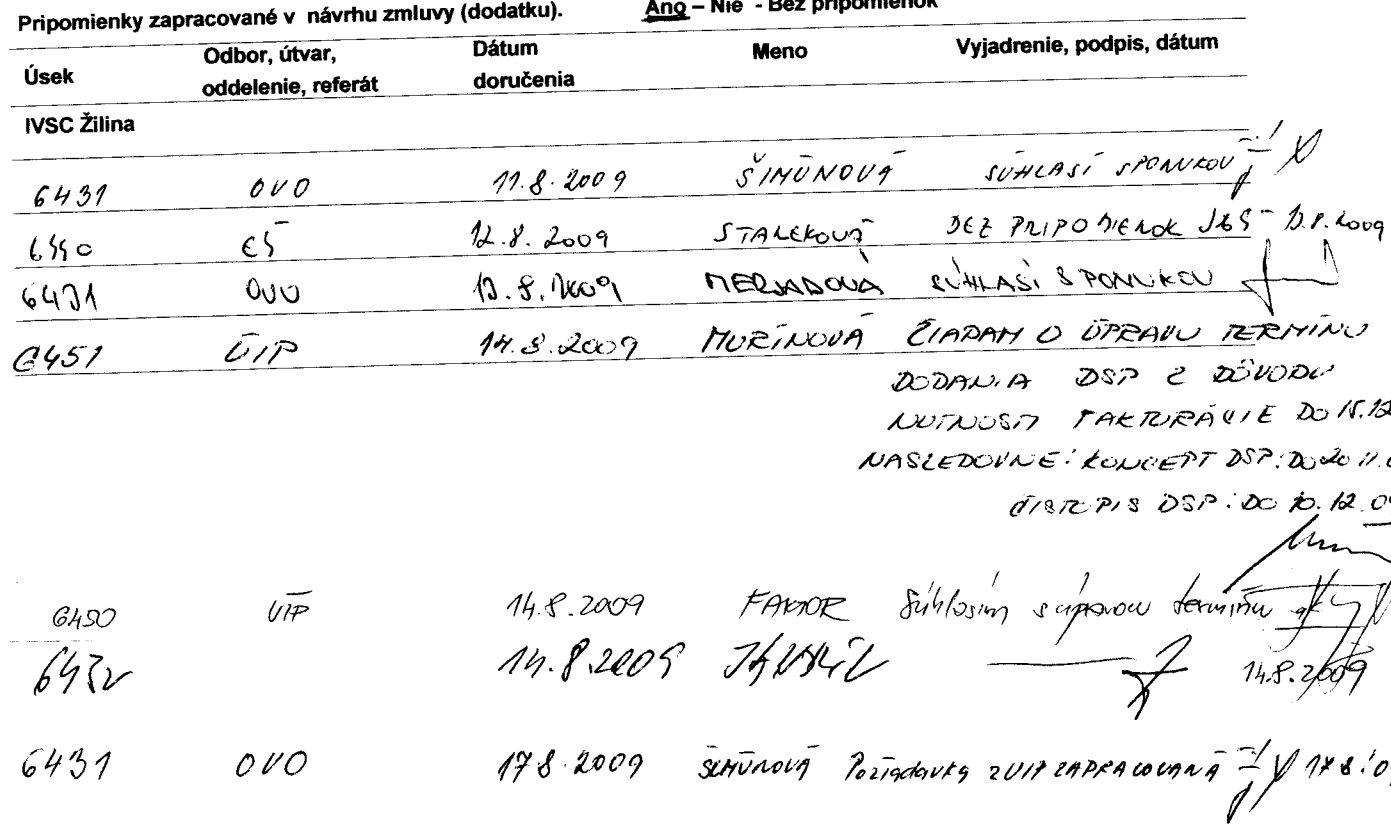 Pripomienky zapracované v návrhu zmluvy (dodatku). Ano – Nie - Bez pripomienok
Úsek Odbor, útvar, oddelenie, referát Dátum doručenia Meno Vyjadrenie, podpis, dátum
IVSC Žilina
6431 OVO 11.8.2009 ŠIMÚNOVÁ SÚHLASÍ S PONUKOU
EŠ 12.8.2009 STALEKOVÁ BEZ PRIPOMIENOK 13.8.2009
6431 OVO 13.8.2009 SÚHLASÍ S PONUKOU
6451 ÚIP 14.8.2009 MURÍNOVÁ ŽIADAM O ÚPRAVU TERMÍNU
DODANIA DSP Z DÔVODU
NUTNOSTI FAKTURÁCIE DO 15.12
NASLEDOVNE: KONCEPT DSP: DO 20.11.
ČISTOPIS DSP: DO 10.12.09
6450 ÚIP 14.8.2009 FAKTOR Súhlasím s úpravou termínu
14.8.2009 14.8.2009
6431 OVO 17.8.2009 ŠIMÚNOVÁ Požiadavka z UIP ZAPRACOVANÁ 17.8.0